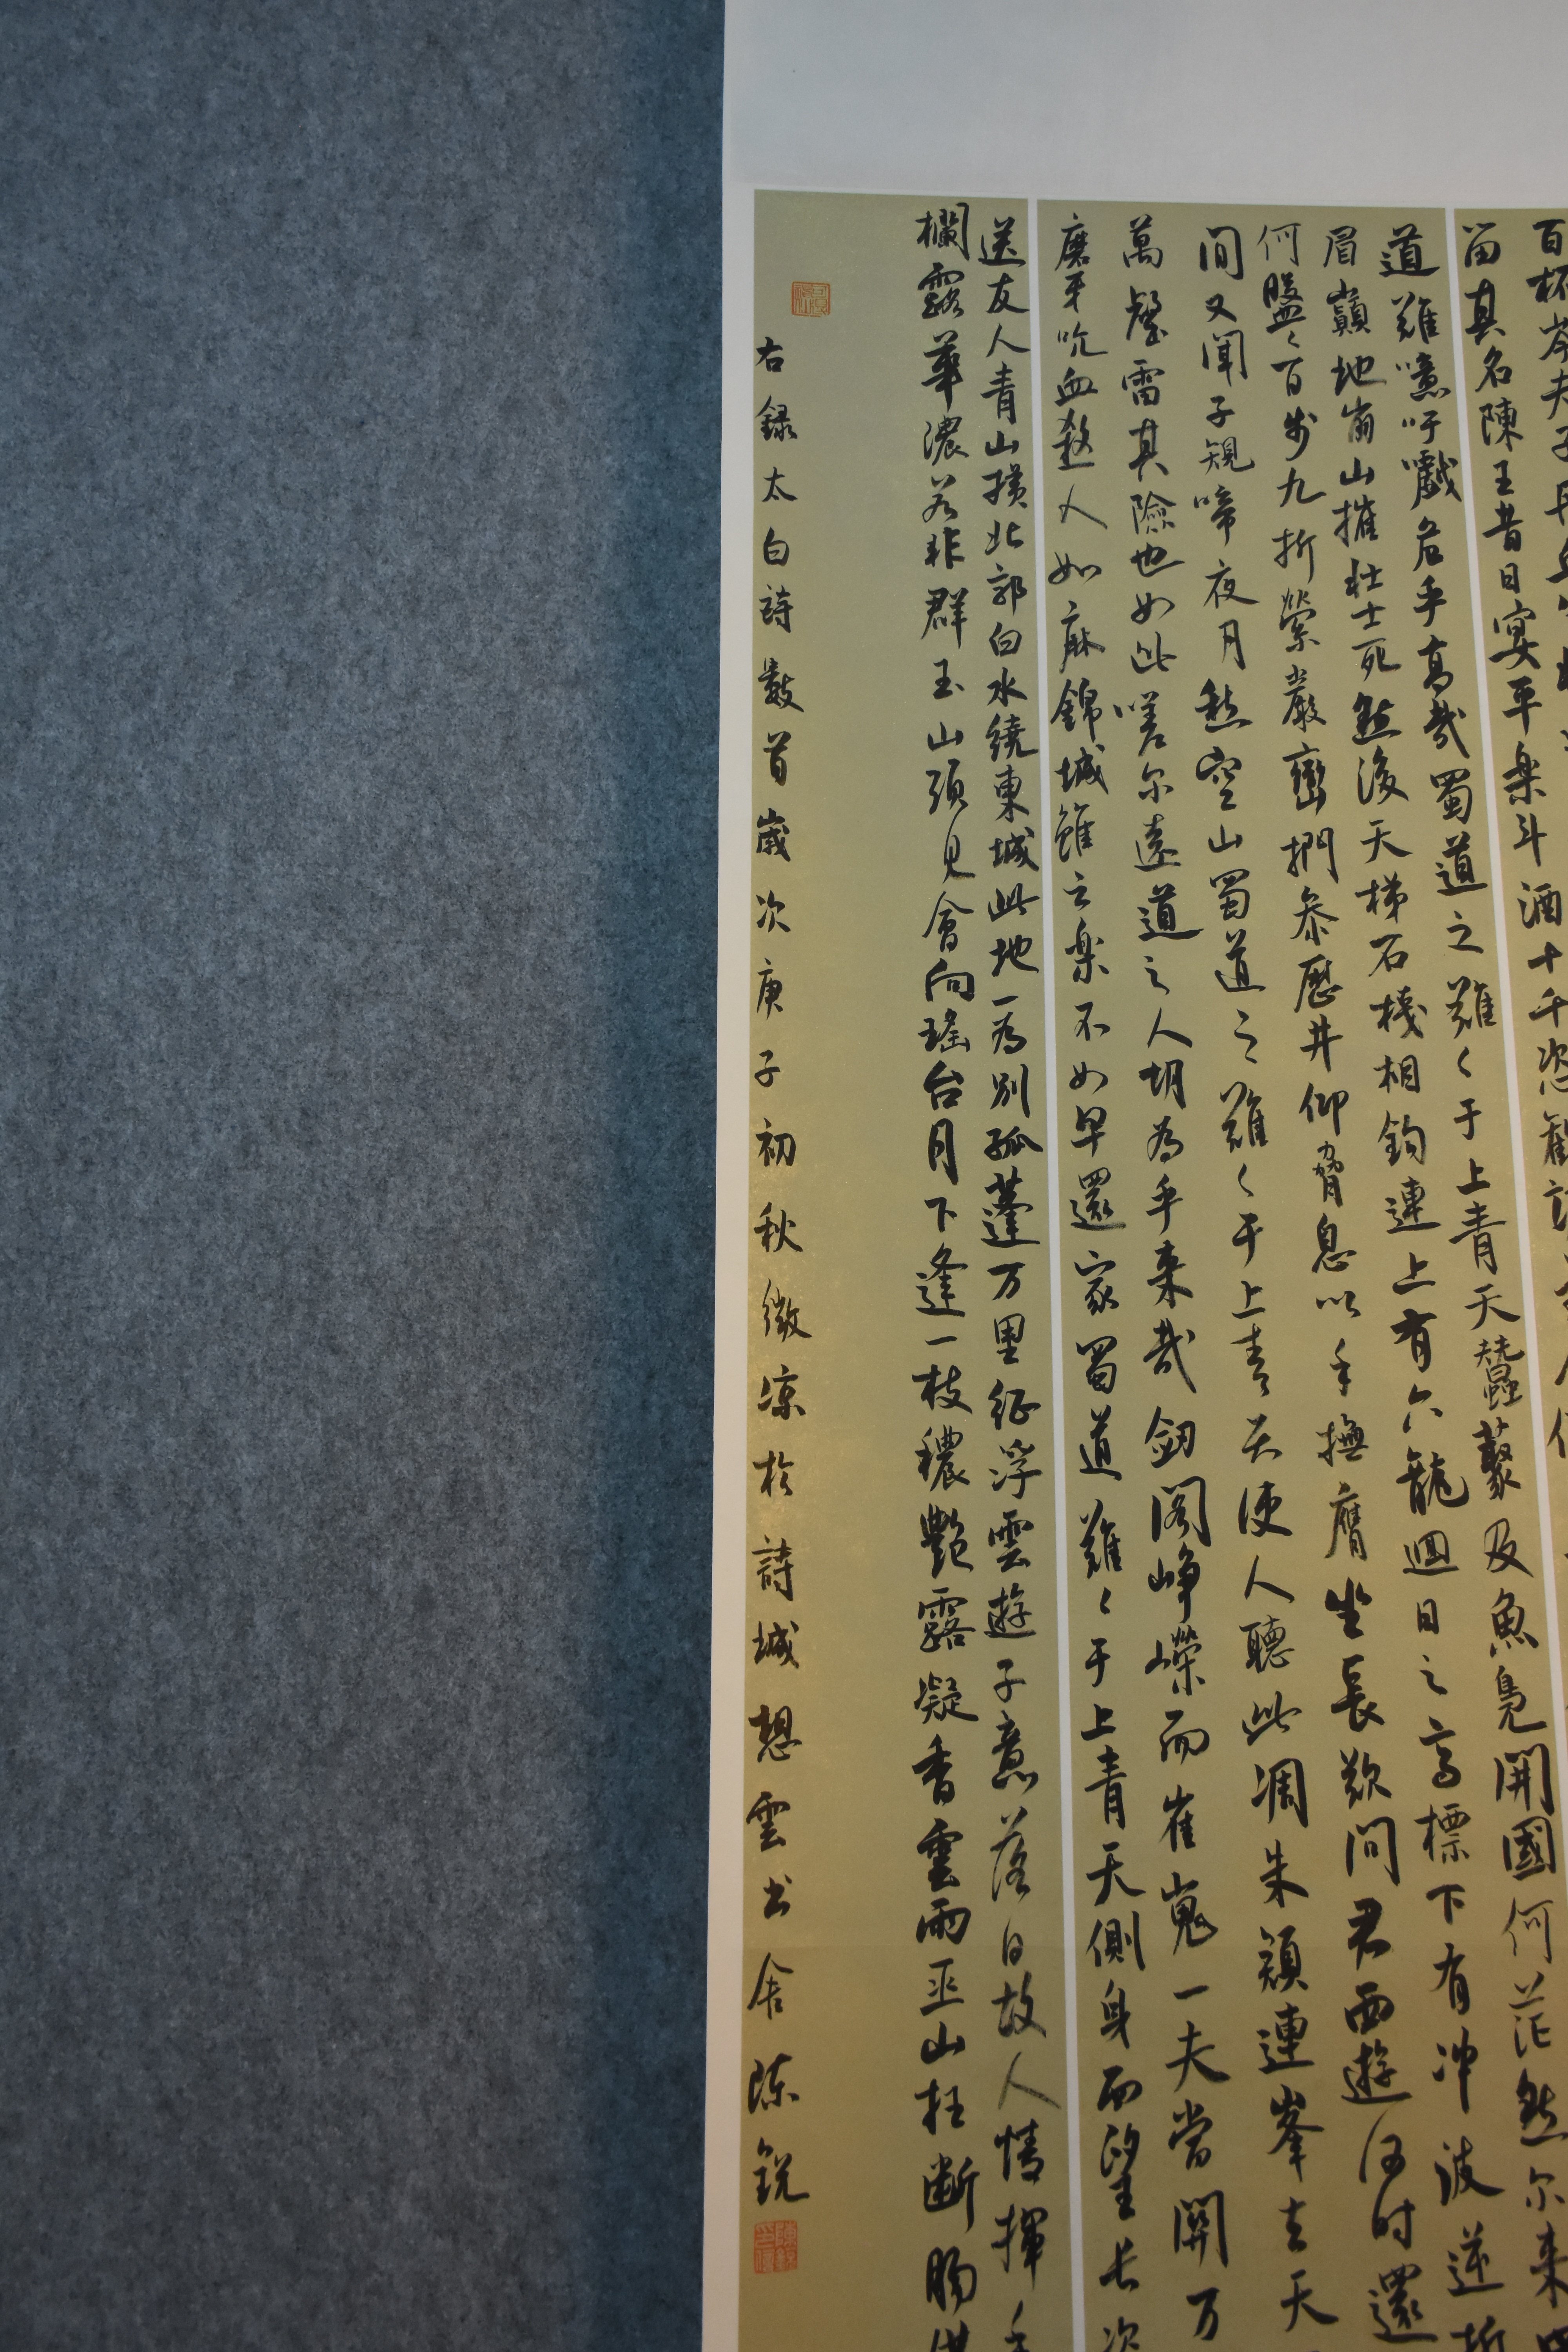 百杯岑夫子丹丘生
留其名陳王昔日宴平楽斗酒十千恣歡
道難噫吁嚱危乎高哉蜀道之難々于上青天蠶叢及魚鳧開國何茫然尔来
眉巔地崩山摧壯士死然後天梯石棧相鉤連上有六龍迴日之高標下有冲波逆折
何盤々百步九折縈巖巒捫參歷井仰脅息以手撫膺坐長歎問君西遊何时還
間又聞子規啼夜月愁空山蜀道之難々于上青天使人聽此凋朱顏連峯去天
萬壑雷其險也如此嗟尔遠道之人胡為乎来哉劔閣崢嶸而崔嵬一夫當關万
磨牙吮血殺人如麻錦城雖云楽不如早還家蜀道難々于上青天側身西望長咨
送友人青山橫北郭白水繞東城此地一為別孤蓬万里征浮雲遊子意落日故人情揮手
欄露華濃若非群玉山頭見會向瑤台月下逢一枝穠艷露凝香雲雨巫山枉斷腸借
右録太白詩數首歲次庚子初秋微凉於詩城想雲书舍陈锐